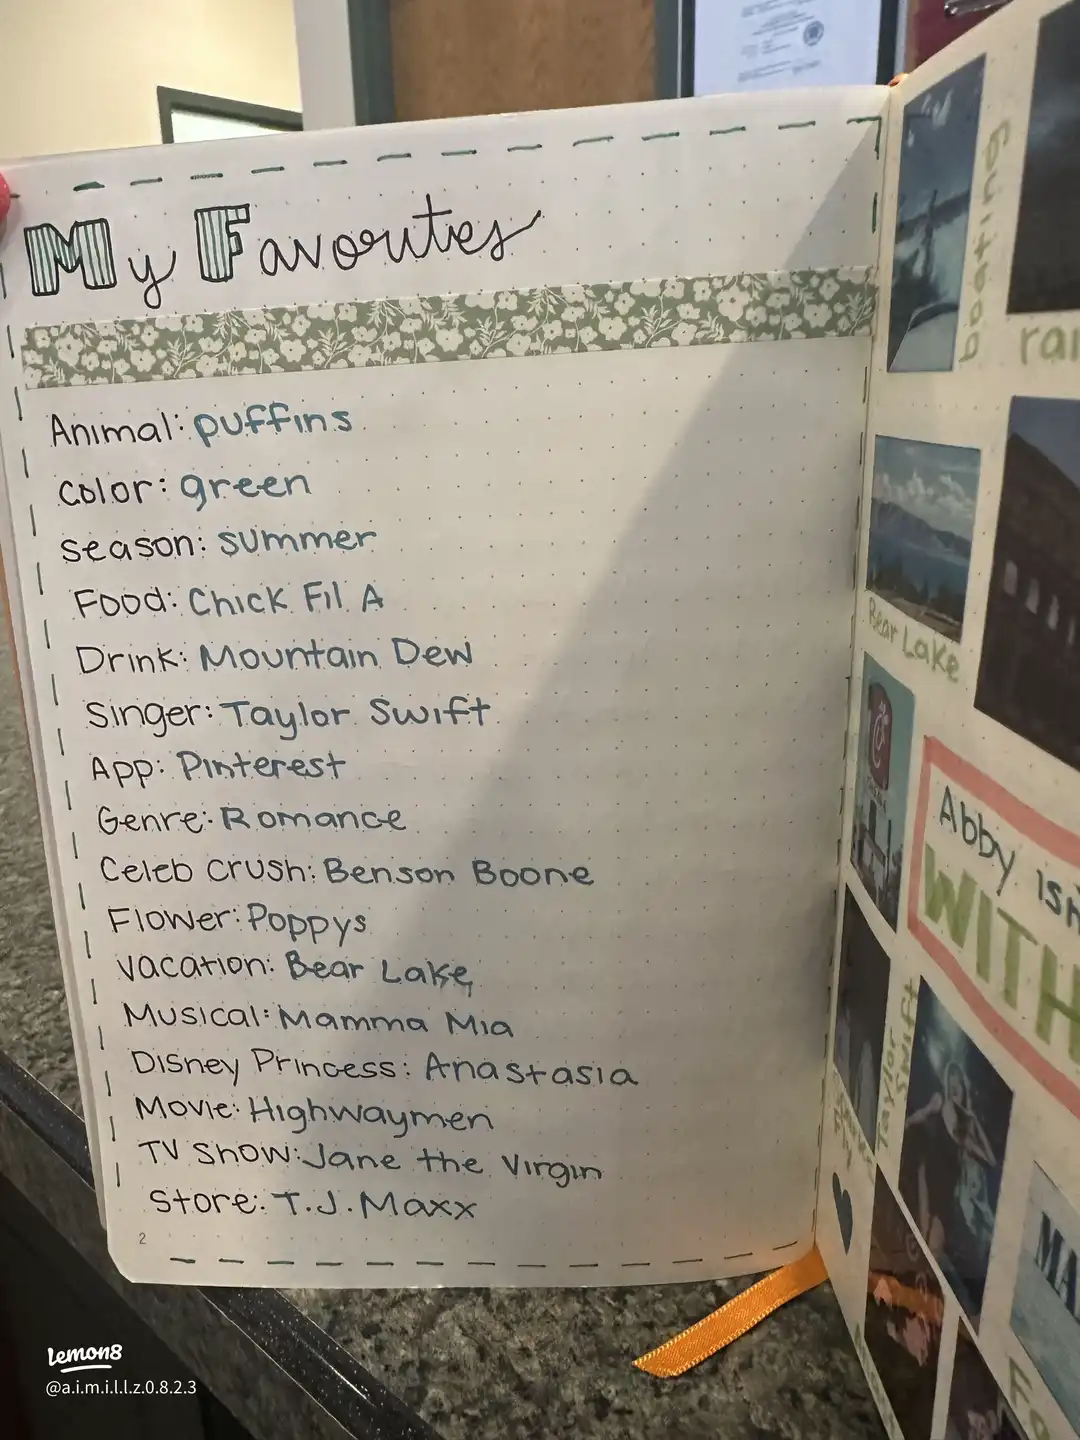 My Favorites
Animal: puffins
Color: green
season: summer
Food: Chick Fil A
Drink: Mountain Dew
Singer: Taylor Swift
App: Pinterest
Genre: Romance
Celeb Crush: Benson Boone
Flower: Poppys
Vacation: Bear Lake
Musical: Mamma Mia
Disney Princess: Anastasia
Movie: Highwaymen
TV Show: Jane the Virgin
Store: T.J.Maxx
2
boating
rai
Bear Lake
Abby isn
WITH
Taylor
Swift
MA
lemon8
@a.i.m.i.l.l.z.0.8.2.3